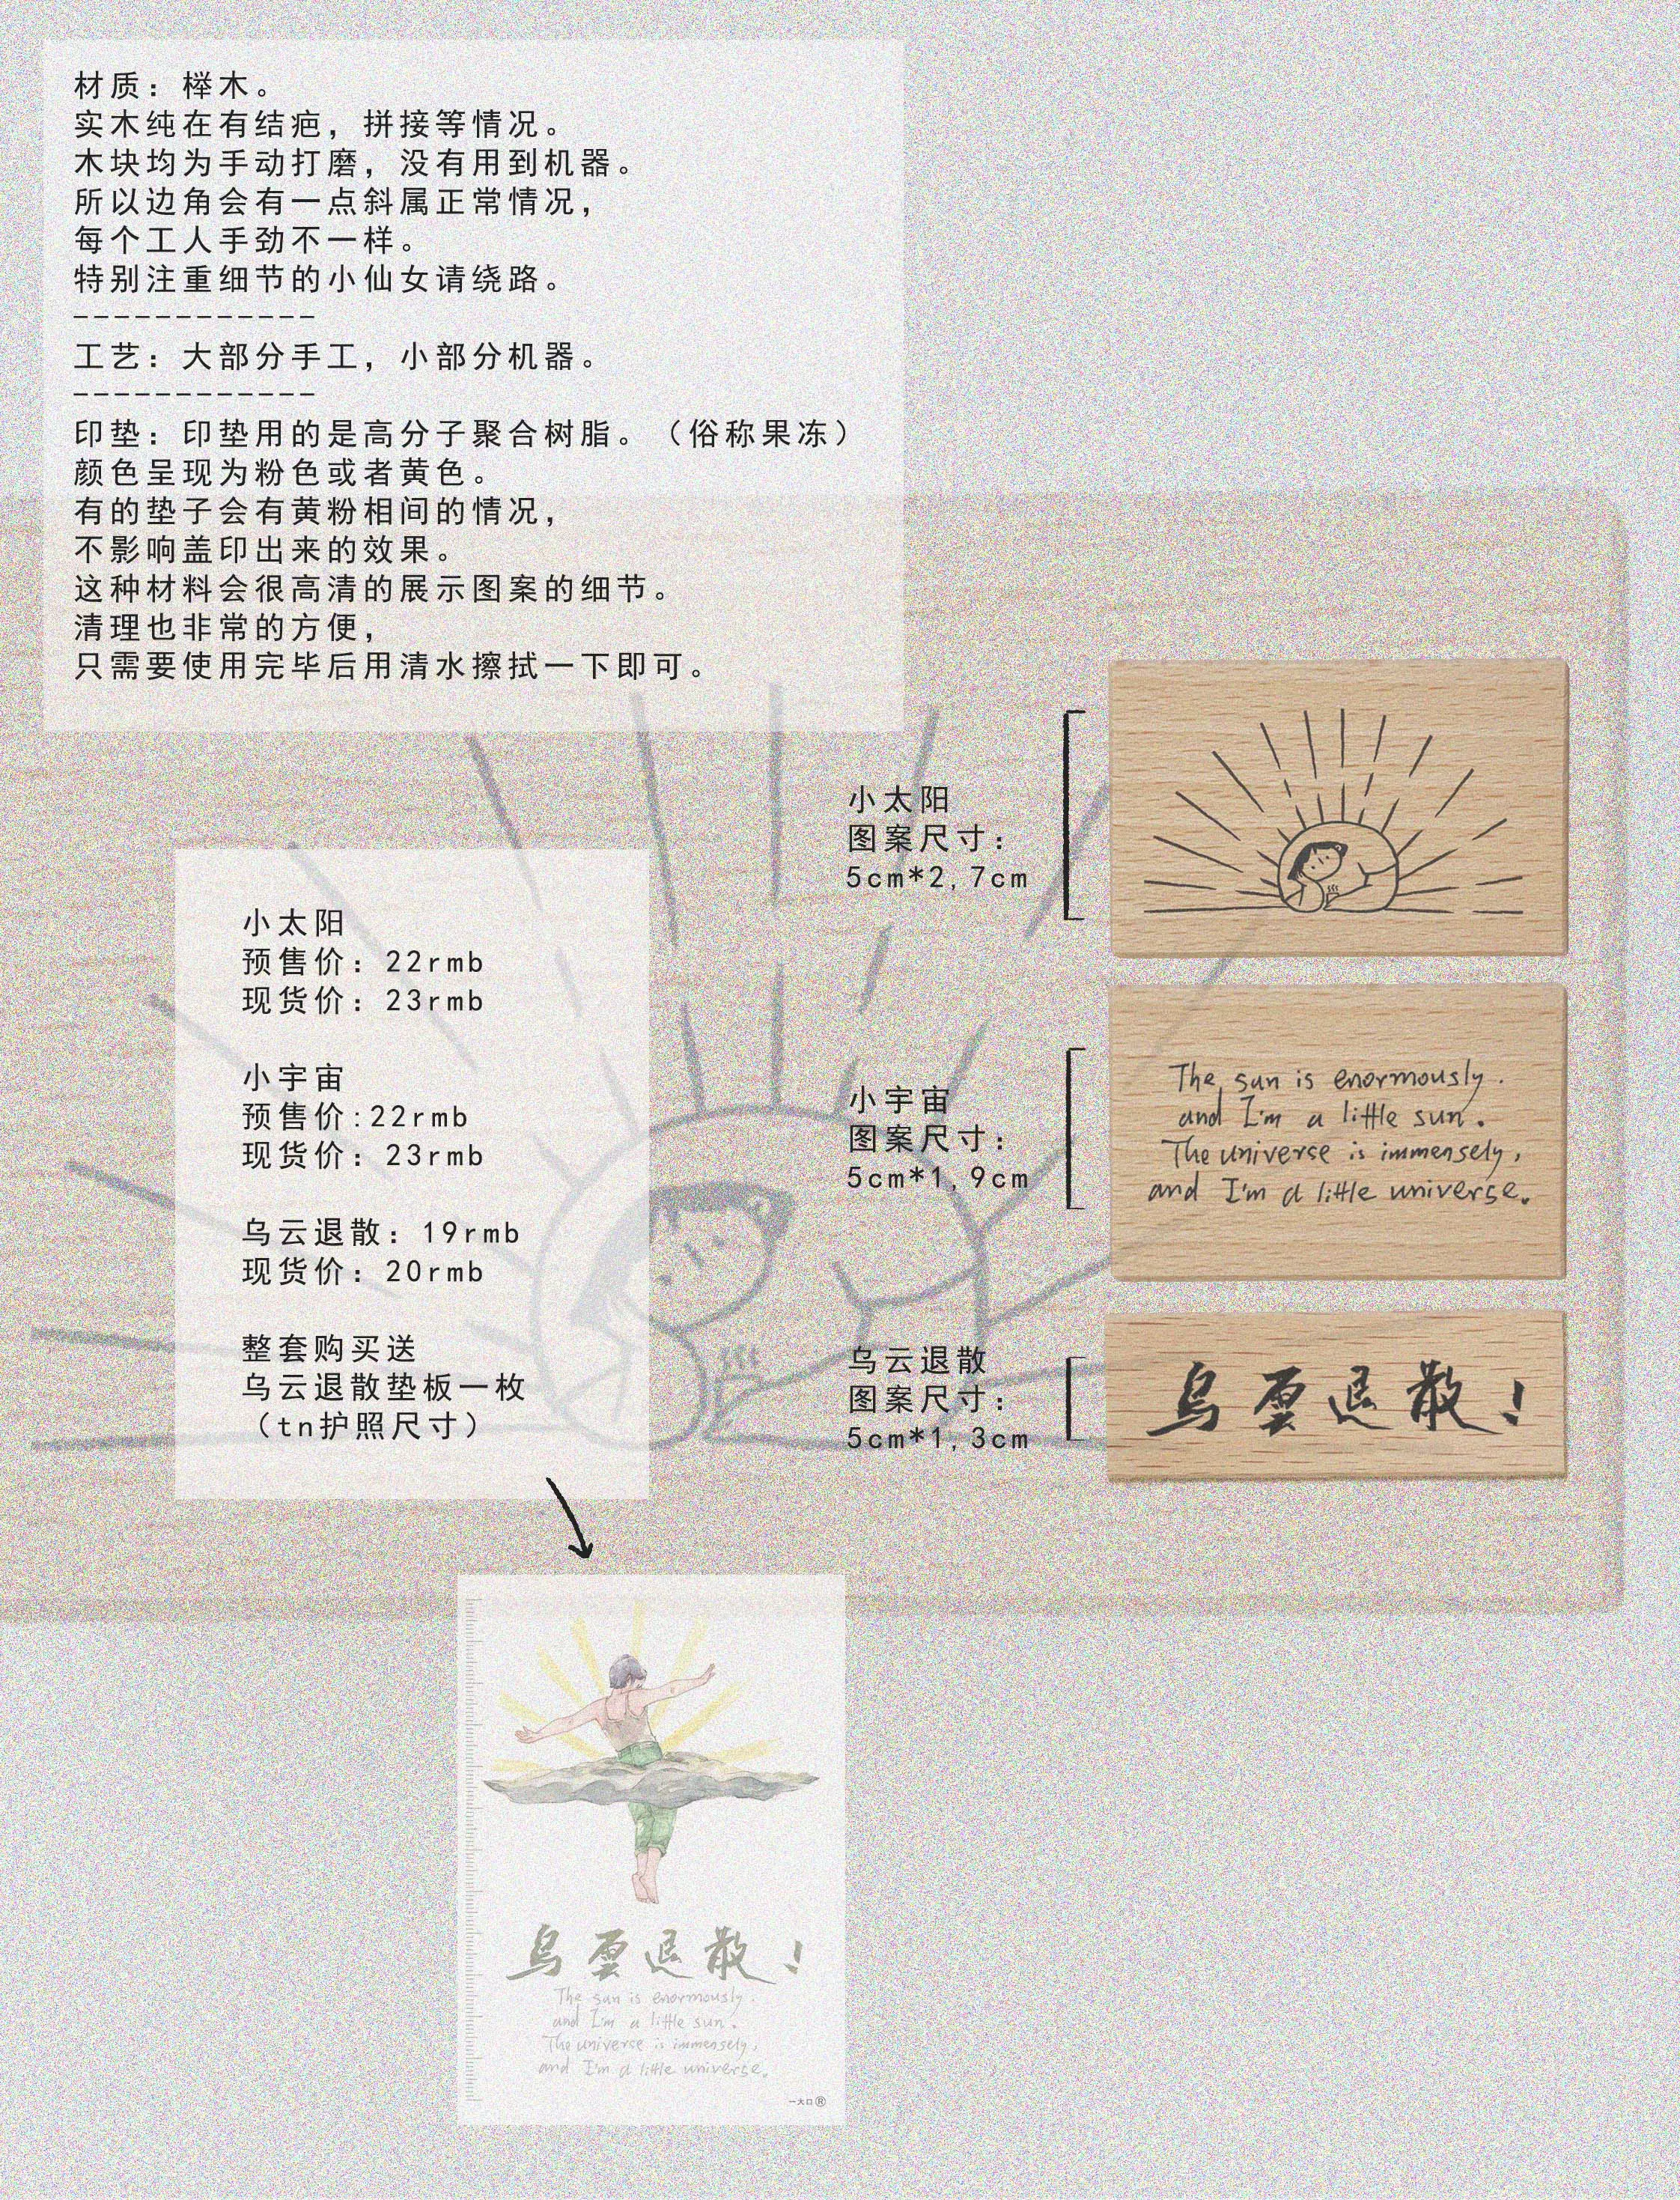 材质：榉木。
实木纯在有结疤，拼接等情况。
木块均为手动打磨，没有用到机器。
所以边角会有一点斜属正常情况，
每个工人手劲不一样。
特别注重细节的小仙女请绕路。
------------
工艺：大部分手工，小部分机器。
------------
印垫：印垫用的是高分子聚合树脂。（俗称果冻）
颜色呈现为粉色或者黄色。
有的垫子会有黄粉相间的情况，
不影响盖印出来的效果。
这种材料会很高清的展示图案的细节。
清理也非常的方便，
只需要使用完毕后用清水擦拭一下即可。
小太阳
图案尺寸：
5cm*2,7cm
小太阳
预售价：22rmb
现货价：23rmb
小宇宙
预售价:22rmb
现货价：23rmb
乌云退散：19rmb
现货价：20rmb
整套购买送
乌云退散垫板一枚
（tn护照尺寸）
小宇宙
图案尺寸：
5cm*1,9cm
The sun is enormously.
and I'm a little sun.
The universe is immensely,
and I'm a little universe.
乌云退散
图案尺寸：
5cm*1,3cm
烏雲退散！
烏雲退散！
The sun is enormously.
and I'm a little sun.
The universe is immensely,
and I'm a little universe.
一大口®